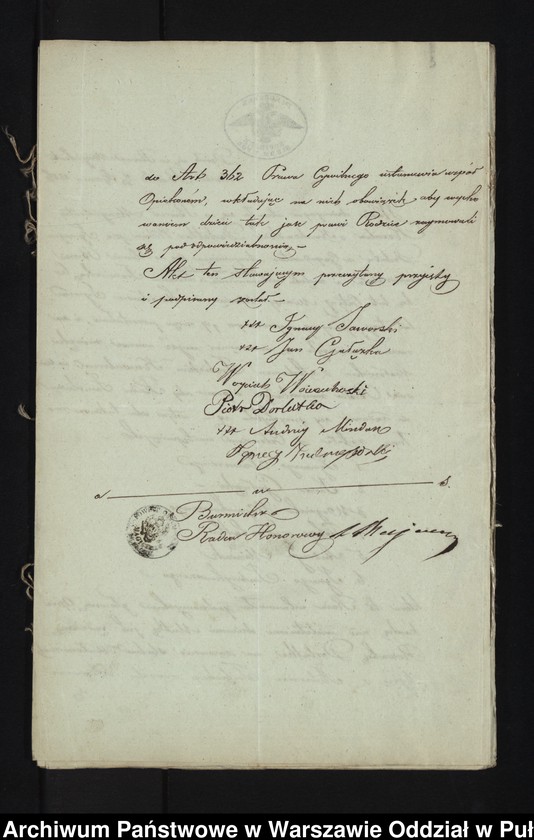 do Art. 362 Prawa Cywilnego ustanowia współ
Opiekunów, wkładając na nich obowiązek aby wycho
waniem dzieci tak jak prawi Rodzice zajmowali
się pod odpowiedzialnością. –
Akt ten stawającym przeczytany przyjęty
i podpisany został. –
+++ Ignacy Jaworski
+++ Jan
Wojciech
Piotr Dorlatka
+++ Andrzej
Ignacy
a ——— w ——— s.
Burmistrz
Radca Honorowy
Archiwum Państwowe w Warszawie Oddział w Puł